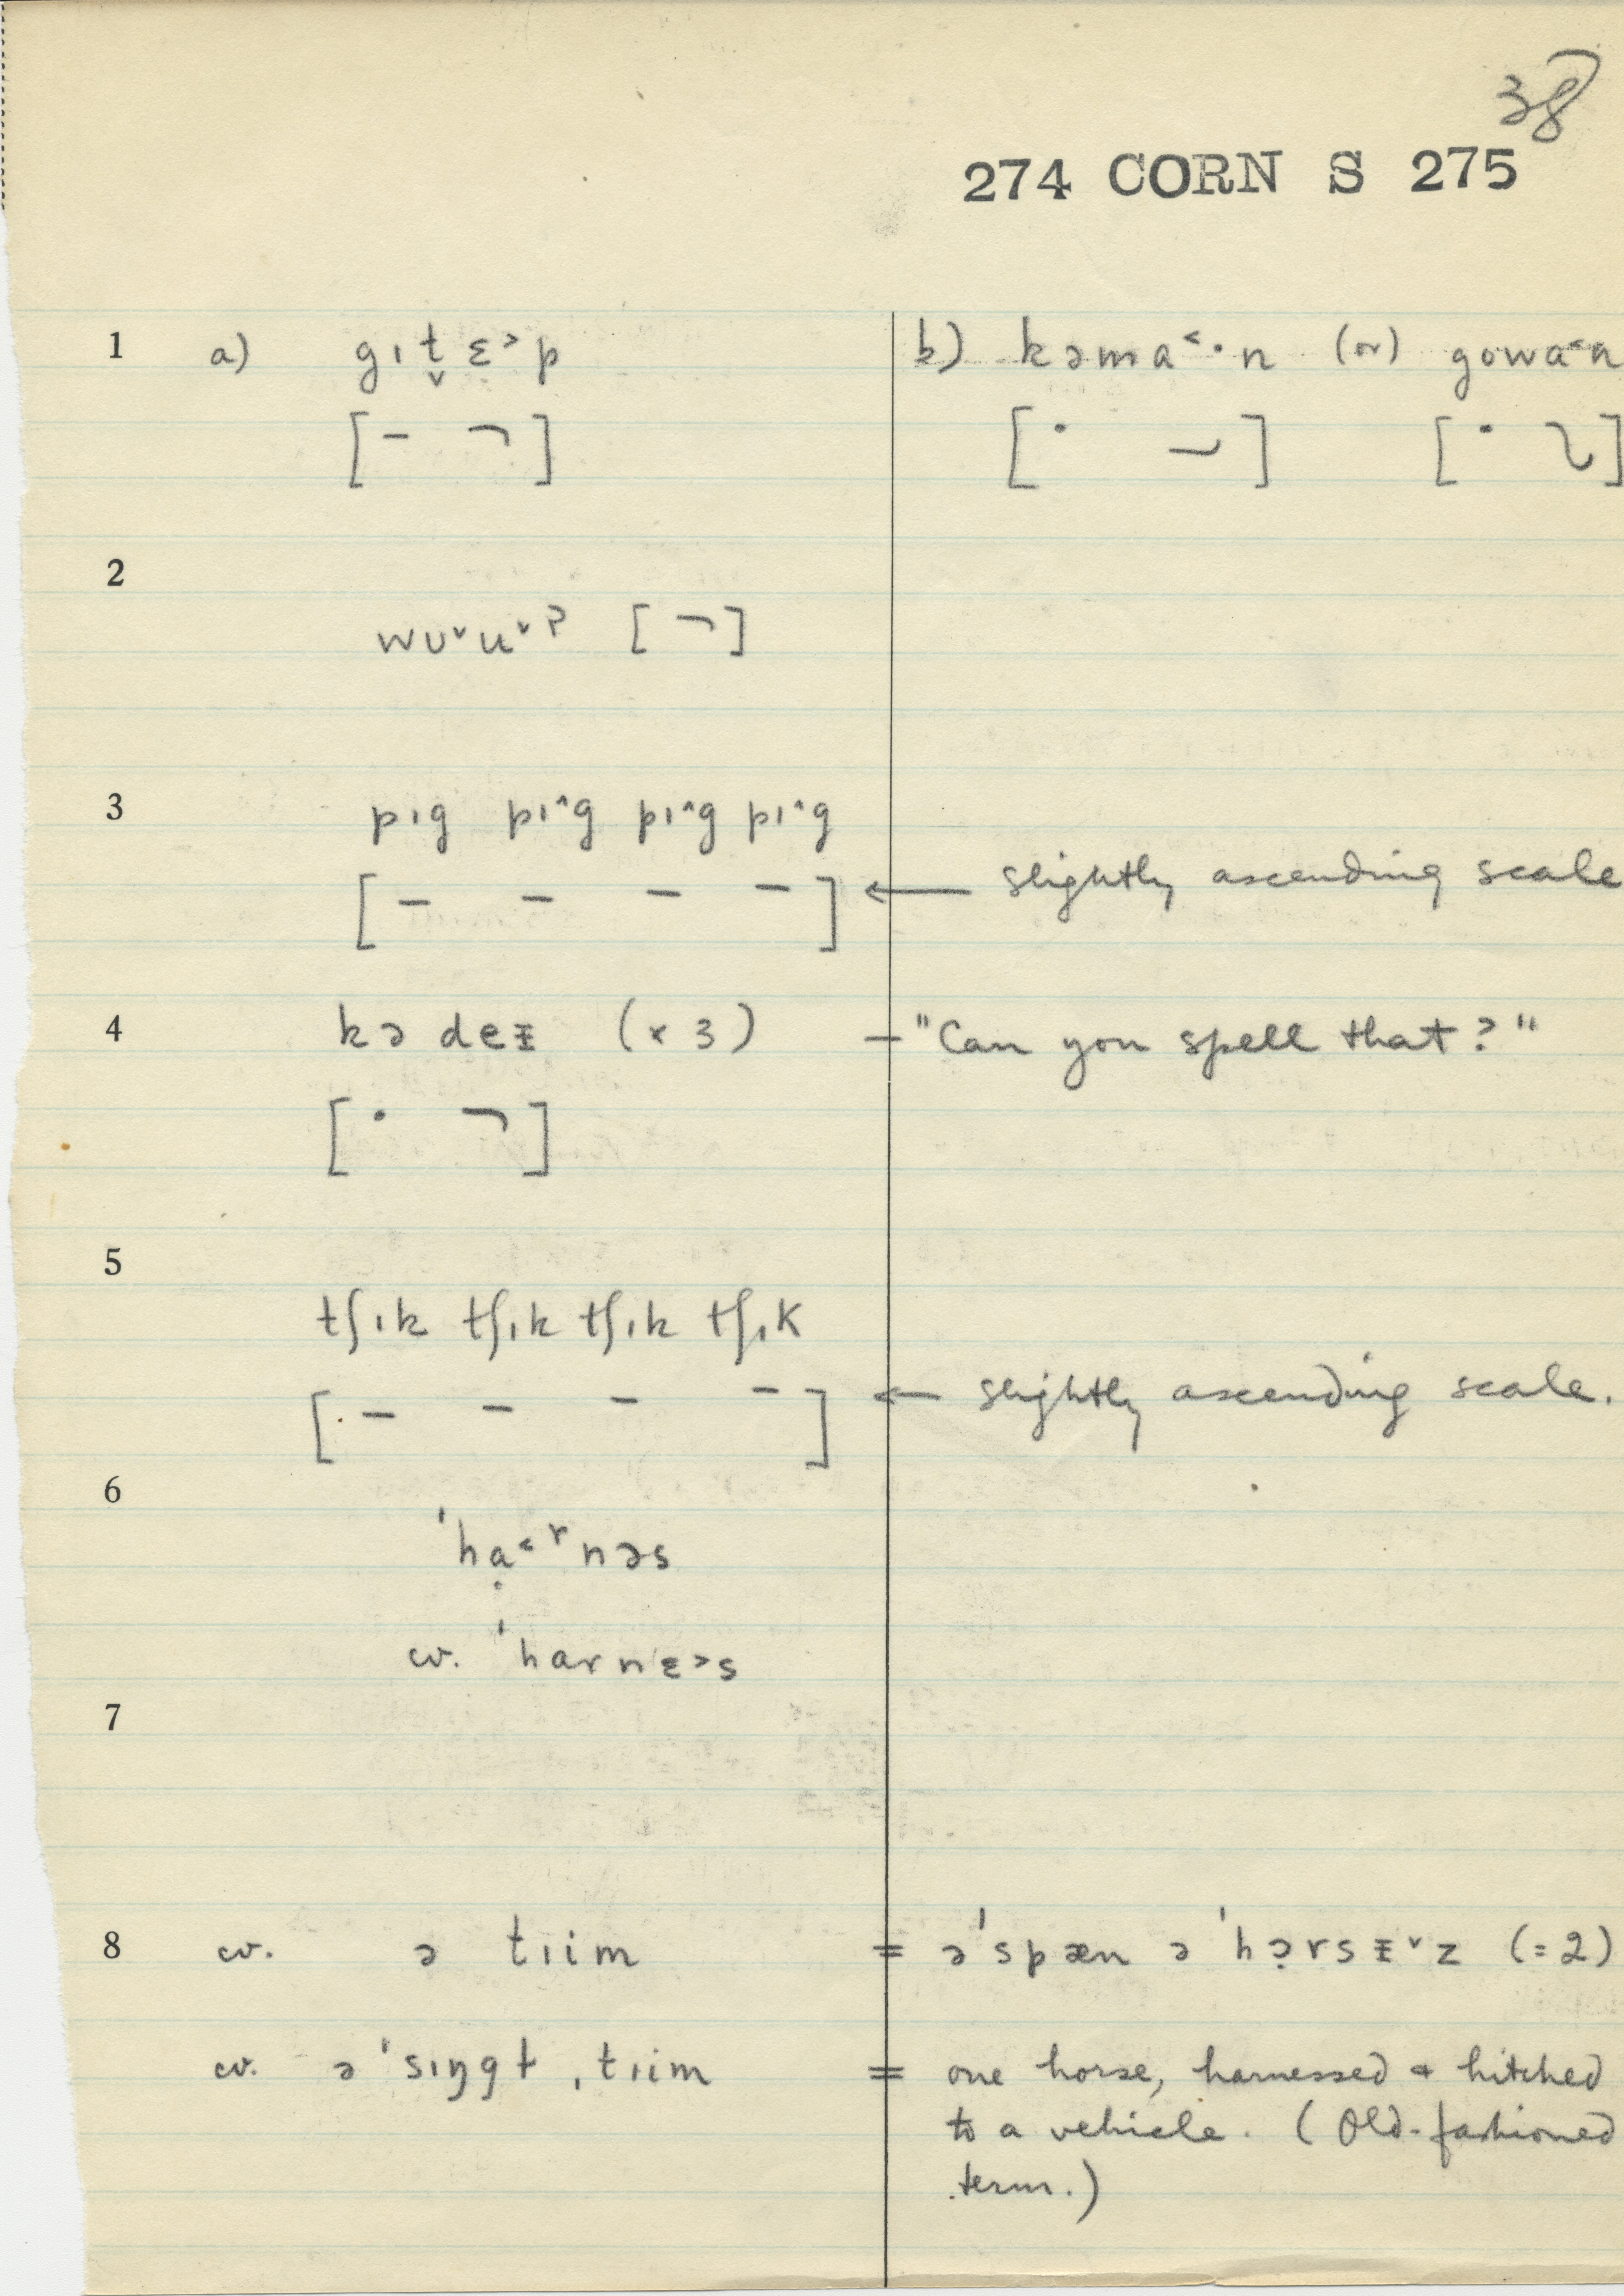 38
274 CORN S 275
1 a) gɪt̬ɛ˃p b) kəma˂·n (or) gowa˂n
[– ¬] [· ⏑] [· ʅ]
2
wʊ˅u˅ʔ [¬]
3 pɪg pɪ^g pɪ^g pɪ^g
[– – – –] ← slightly ascending scale
4 kə deᵻ (x 3) – "Can you spell that?"
[· ¬]
5
tʃɪk tʃɪk tʃɪk tʃɪk
[– – – –] ← slightly ascending scale.
6
ˈhạ˂ʳnəs
cv. ˈharnɛ˃s
7
8 cv. ə tɪim = əˈspæn əˈhɔ̣rsᵻ˅z (=2)
cv. əˈsɪŋgɫ ˌtɪim = one horse, harnessed & hitched
to a vehicle. (Old-fashioned
term.)